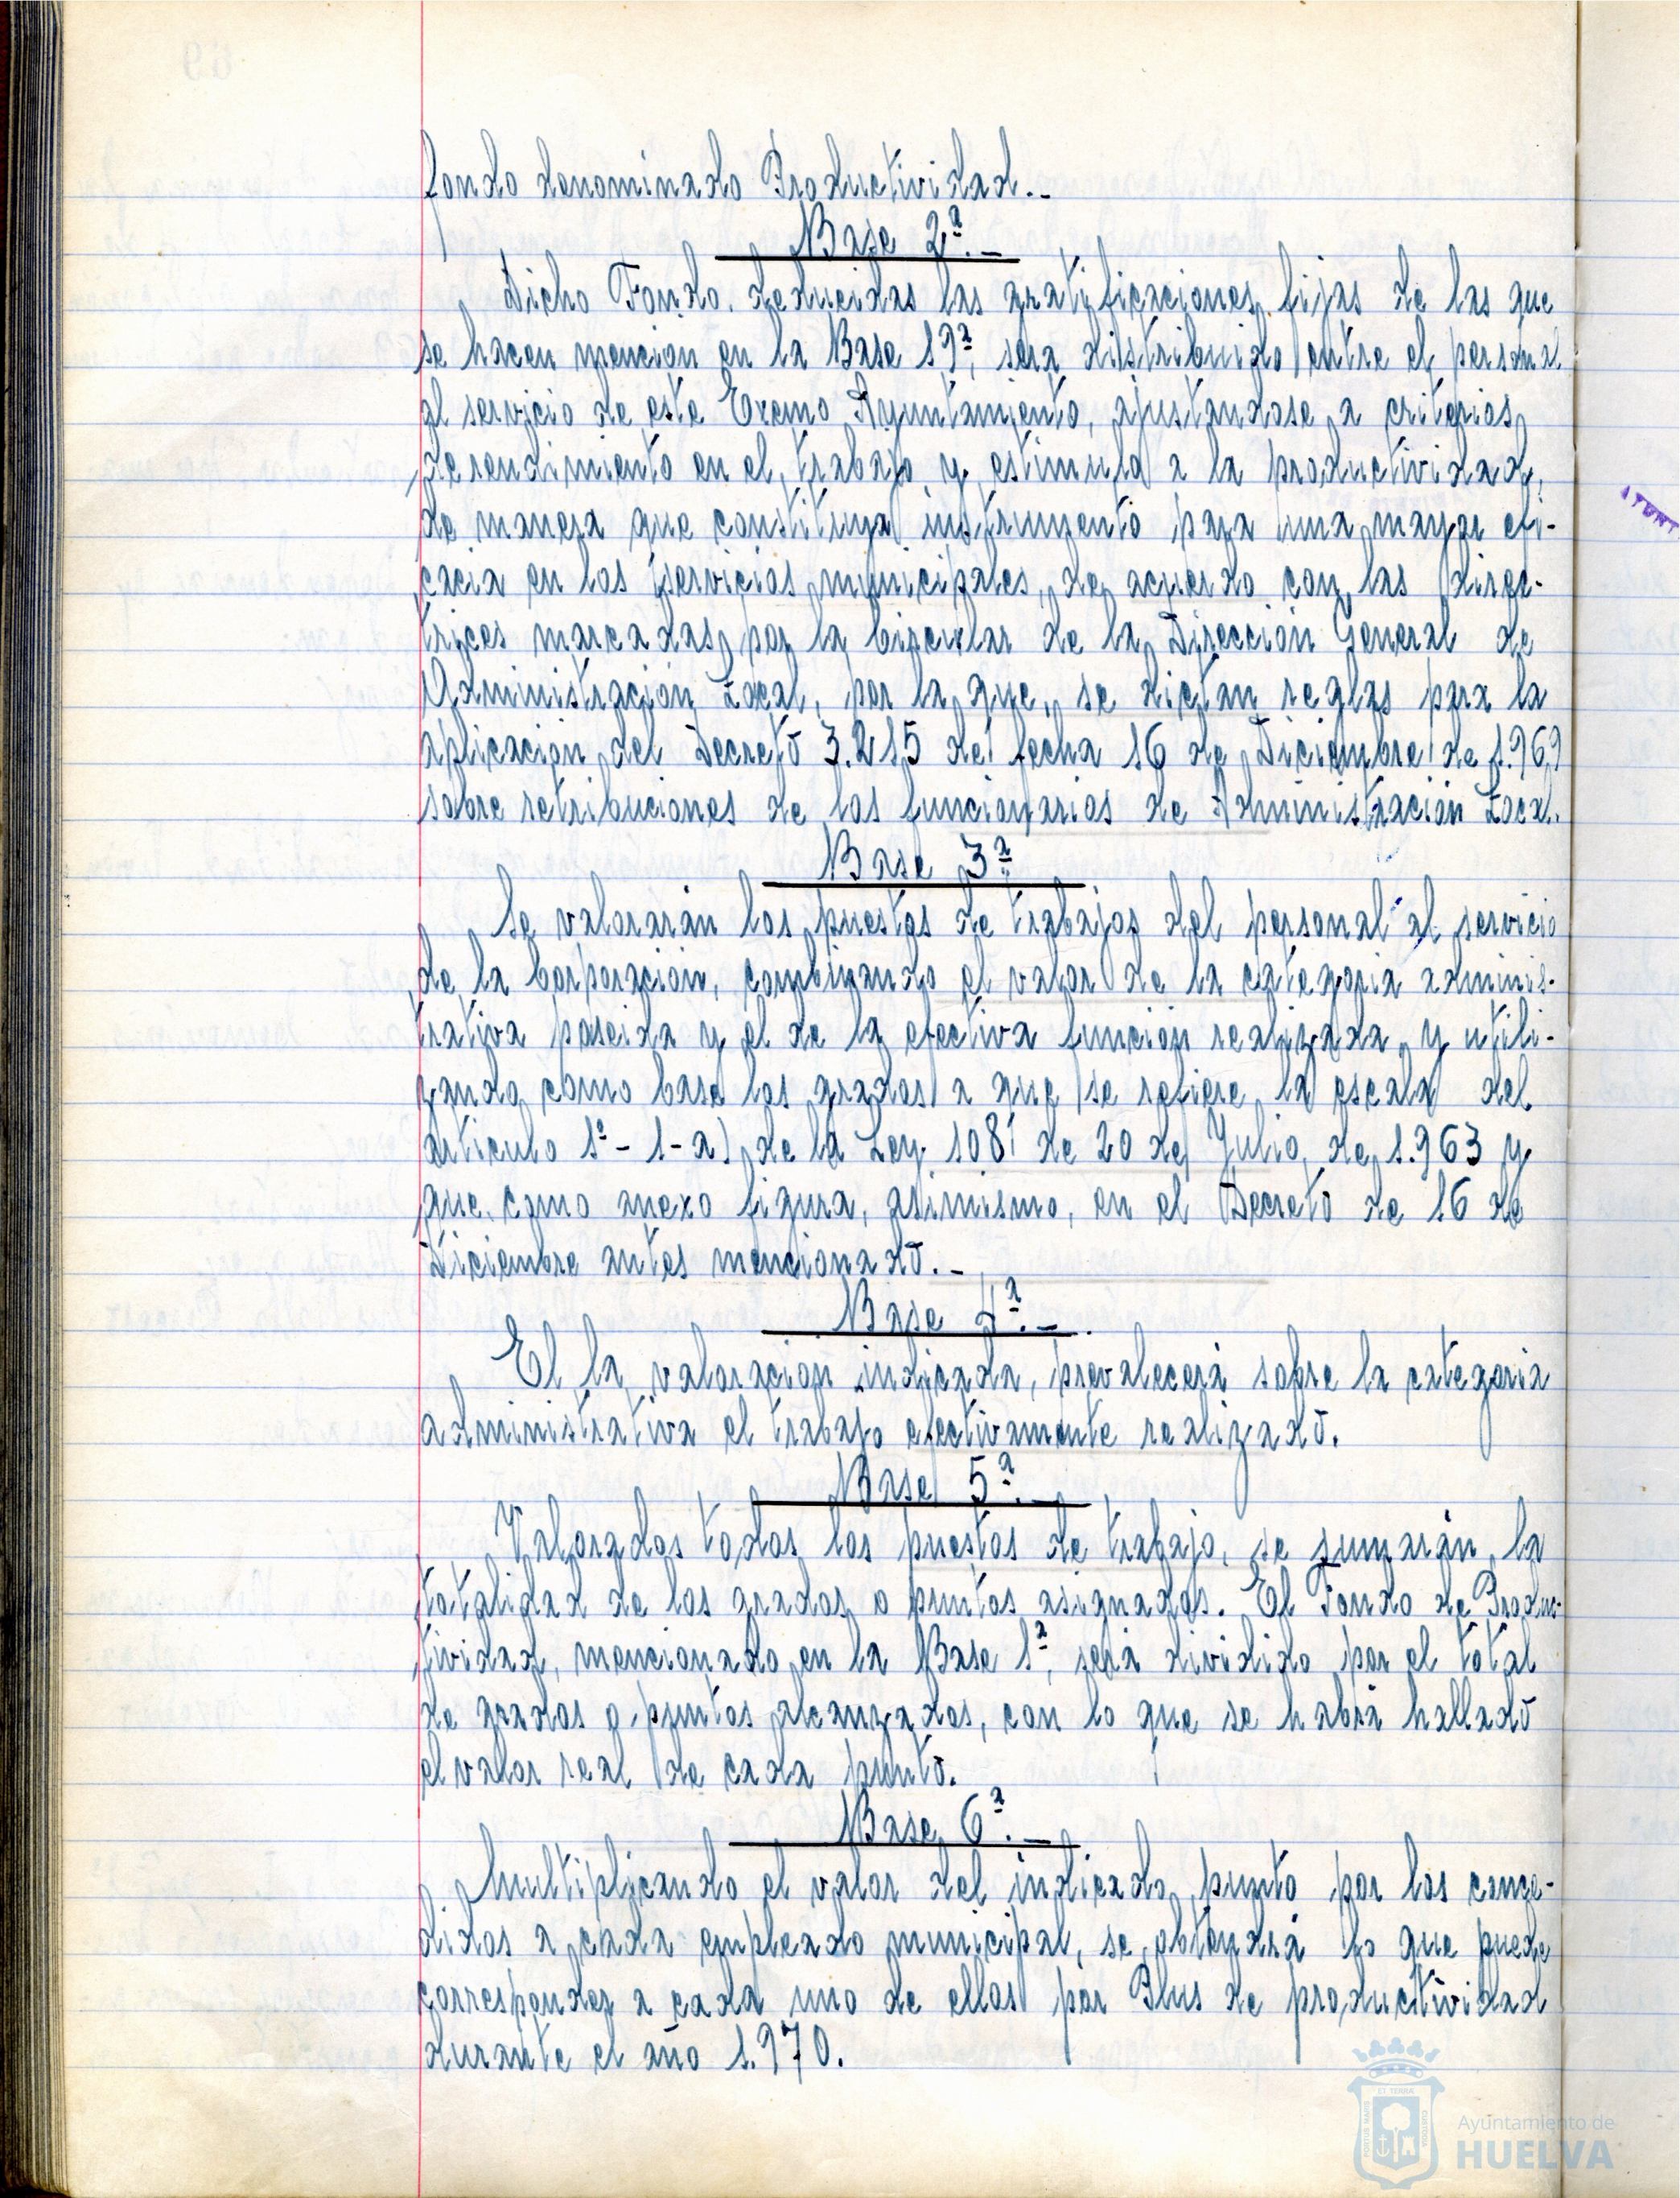 fondo denominado Productividad.-
Base 2ª.-
Dicho Fondo, deducidas las gratificaciones fijas de las que
se hacen mención en la Base 19ª, será distribuido entre el personal
al servicio de este Excmo Ayuntamiento, ajustandose a criterios
de rendimiento en el trabajo y estimulo a la productividad,
de manera que constituya instrumento para una mayor efi-
cacia en los servicios municipales, de acuerdo con las direc-
trices marcadas por la Circular de la Dirección General de
Administración Local, por la que, se dictan reglas para la
aplicación del Decreto 3.215 de fecha 16 de Diciembre de 1.969
sobre retribuciones de los funcionarios de Administración Local.
Base 3ª
Se valorarán los puestos de trabajos del personal al servicio
de la Corporación, combinando el valor de la categoria adminis-
trativa poseida y el de la efectiva función realizada y utili-
zando como base los grados a que se refiere la escala del
artículo 1º - 1-a) de la Ley 108 de 20 de Julio de 1.963 y
que como anexo figura, asimismo, en el Decreto de 16 de
Diciembre antes mencionado.-
Base 4ª.-
El la valoración indicada, prevalecerá sobre la categoria
administrativa el trabajo efectivamente realizado.
Base 5ª.-
Valorados todos los puestos de trabajo, se sumarán la
totalidad de los grados o puntos asignados. El Fondo de Produc-
tividad, mencionado en la Base 1ª, será dividido por el total
de grados o puntos alcanzados, con lo que se habrá hallado
el valor real de cada punto.
Base 6ª.-
Multiplicando el valor del indicado punto por los conce-
didos a cada empleado municipal, se obtendrá lo que puede
corresponder a cada uno de ellos por Plus de productividad
durante el año 1.970.
Ayuntamiento de
HUELVA